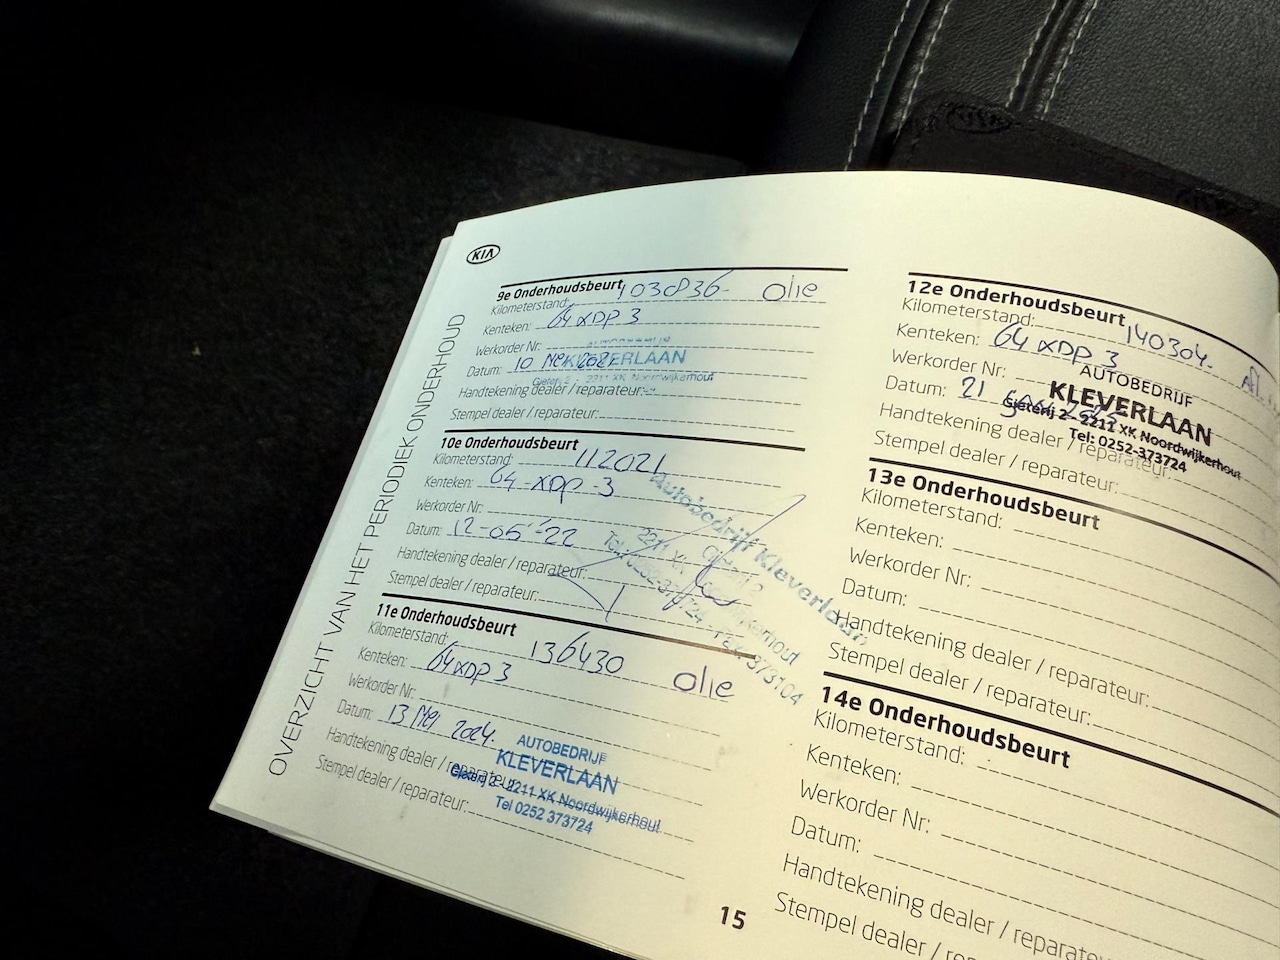 KIA
OVERZICHT VAN HET PERIODIEK ONDERHOUD
9e Onderhoudsbeurt
Kilometerstand: 103836 Olie
Kenteken: 64 XDP 3
Werkorder Nr:
Datum: 10 Mei 2021
KLEVERLAAN
Gieterij 2 - 2211 XK Noordwijkerhout
Handtekening dealer / reparateur:
Stempel dealer / reparateur:
10e Onderhoudsbeurt
Kilometerstand: 112021
Kenteken: 64-XDP-3
Werkorder Nr:
Datum: 12-05-'22
Handtekening dealer / reparateur:
Stempel dealer / reparateur:
Autobedrijf Kleverlaan
11e Onderhoudsbeurt
Kilometerstand: 136430
Kenteken: 64XDP3 Olie
Werkorder Nr:
Datum: 13 Mei 2024.
Handtekening dealer / reparateur:
Stempel dealer / reparateur:
AUTOBEDRIJF
KLEVERLAAN
Gieterij 2 - 2211 XK Noordwijkerhout
Tel 0252 373724
12e Onderhoudsbeurt
Kilometerstand: 140304.
Kenteken: 64 XDP 3
Werkorder Nr:
Datum: 21
Handtekening dealer / reparateur:
Stempel dealer / reparateur:
AUTOBEDRIJF
KLEVERLAAN
Gieterij 2 - 2211 XK Noordwijkerhout
Tel: 0252-373724
13e Onderhoudsbeurt
Kilometerstand:
Kenteken:
Werkorder Nr:
Datum:
Handtekening dealer / reparateur:
Stempel dealer / reparateur:
14e Onderhoudsbeurt
Kilometerstand:
Kenteken:
Werkorder Nr:
Datum:
Handtekening dealer / reparateur:
Stempel dealer /
15